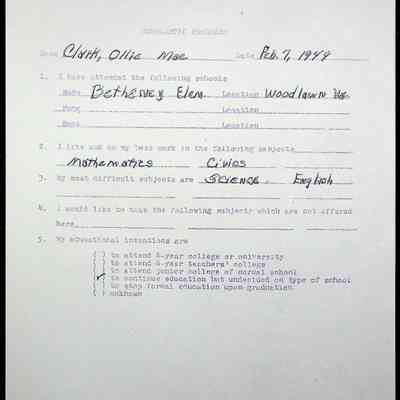 SCHOLASTIC PROGRESS
Name Clark, Ollie Mae Date Feb. 7, 1949
1. I have attended the following schools
Name Bethaney Elem. Location Woodlawn Va.
Name Location
Name Location
2. I like and do my best work in the following subjects
Mathematics Civics
3. My most difficult subjects are Science English
4. I would like to take the following subjects which are not offered
here
5. My educational intentions are
( ) to attend 4-year college or university
( ) to attend 4-year teachers' college
( ) to attend junior college of normal school
(✓) to continue education but undecided on type of school
( ) to stop formal education upon graduation
( ) unknown